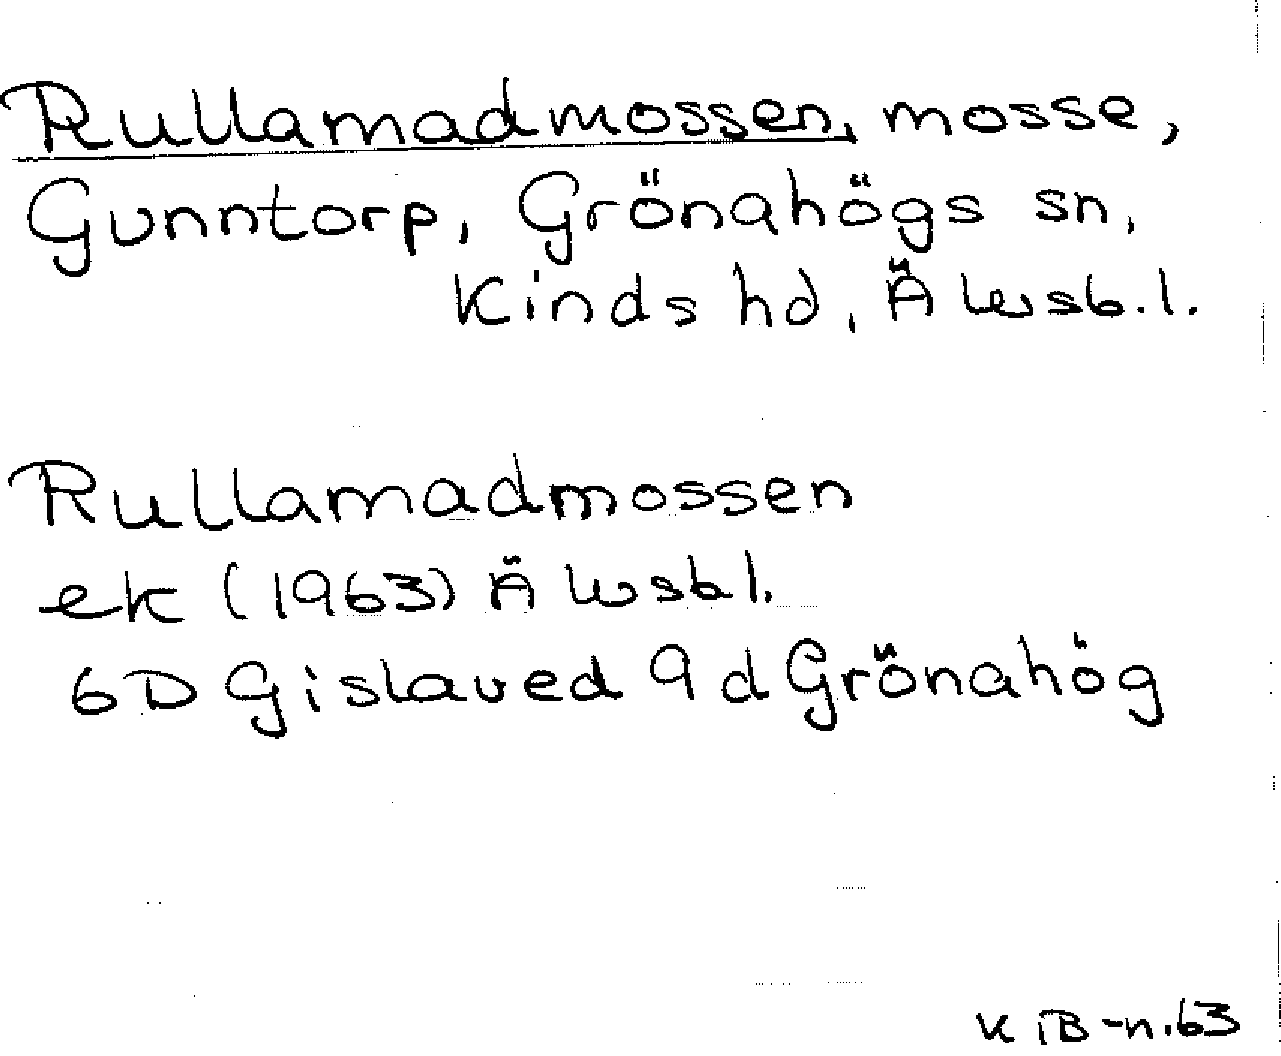 Rullamadmossen, mosse,
Gunntorp, Grönahögs sn,
Kinds hd, Älvsb.l.
Rullamadmossen
ek (1963) Älvsbl.
6D Gislaved 9d Grönahög
K iB-n.63